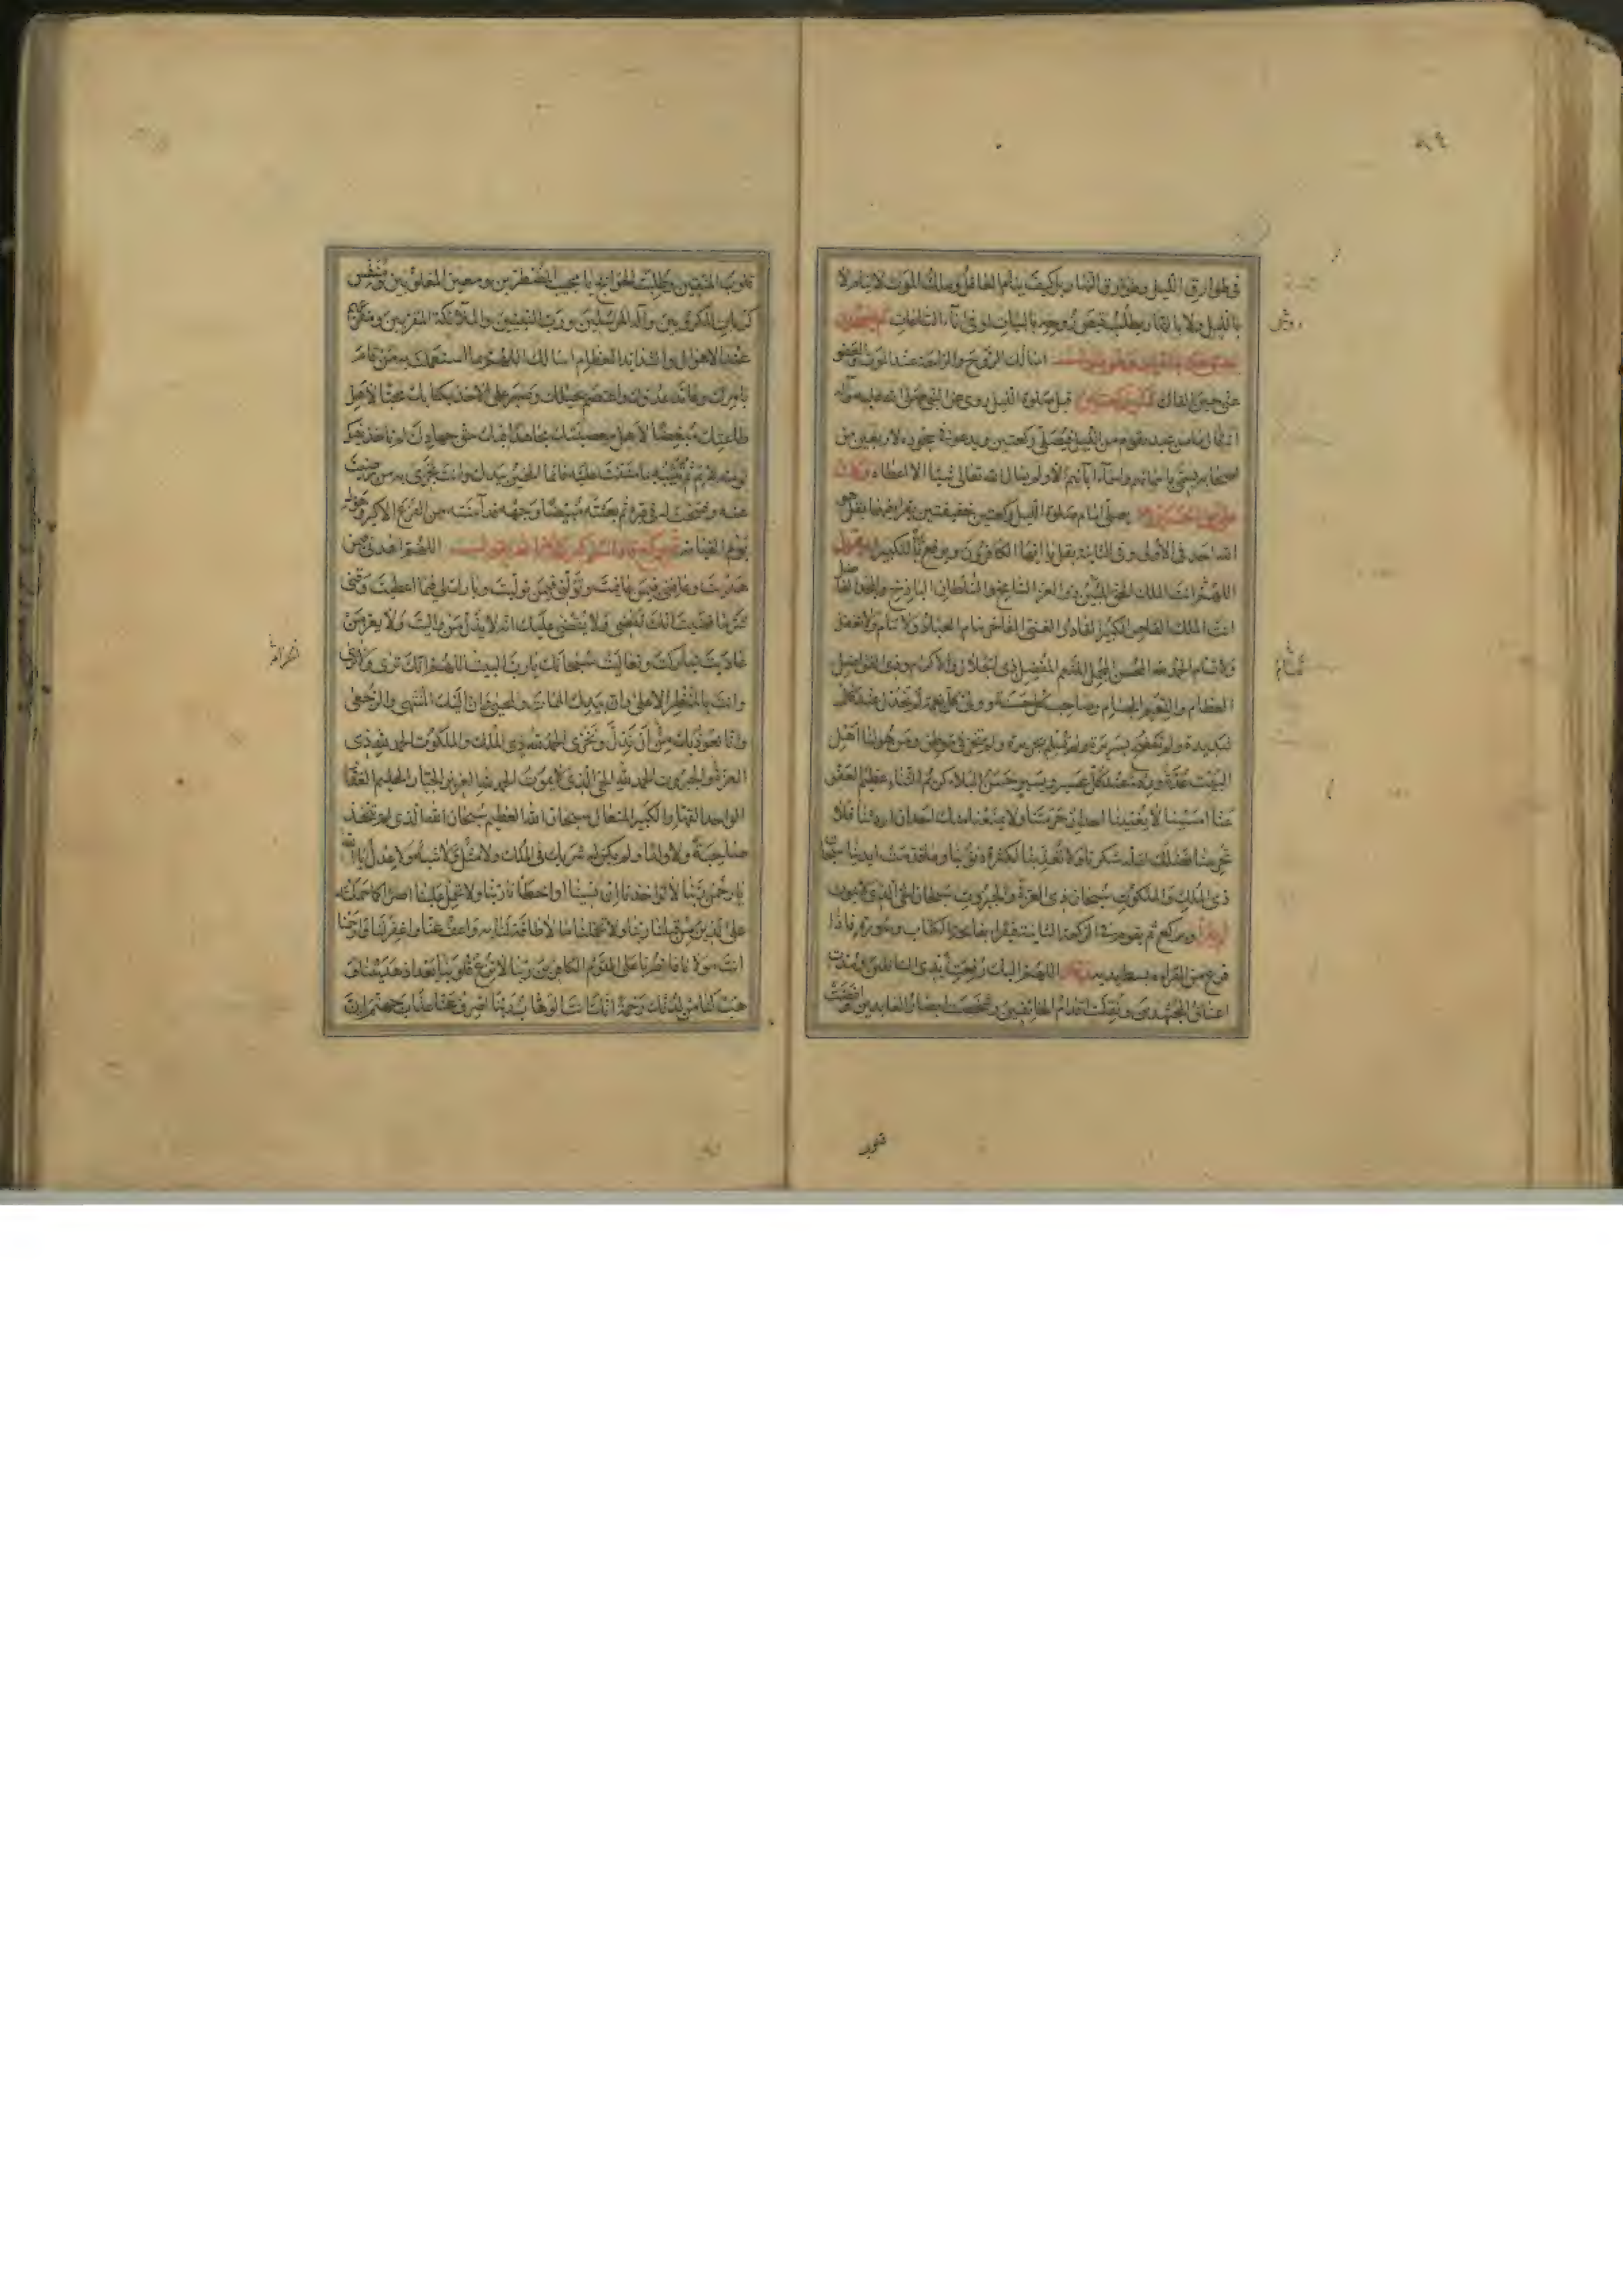 في طوارق الليل وطوارق النهار بل كيف ينام الغافل وملك الموت لا ينام لا
بالليل ولا بالنهار يطلب قبض روحه بالبيات او في آناء الساعات
اسألك الروح والراحة عند الموت والعفو
عني حين القاك قبل صلوة الليل روى عن النبي صلى الله عليه وآله
انه قال ما من عبد يقوم من الليل فيصلى ركعتين ويدعو في سجوده لاربعين من
اصحابه يسمى باسمائهم واسماء آبائهم الا ولم يسأل الله تعالى شيئا الا اعطاه وكان
على بن الحسين يصلى امام صلوة الليل ركعتين خفيفتين يقرا فيهما بقل هو
الله احد في الاولى وفي الثانية بقل يا ايها الكافرون ويرفع يده بالتكبير ويقول
اللهم انت الملك الحق المبين ذو العز الشامخ والسلطان الباذخ والمجد الفاضل
انت الملك القاهر الكبير القادر الغنى الفاخر ينام العباد ولا تنام ولا تغفل
ولا تسام الحمد لله المحسن المجمل المنعم المفضل ذي الجلال والاكرام وذي الفواضل
العظام والنعم الجسام وصاحب كل حسنة وولى كل نعمة لم يخذل عند كل
شديدة ولم يفضح بسريرة ولم يسلم بجريرة ولم يخز في موطن ومن هو لنا اهل
البيت عدة وردء عند كل عسير ويسير حسن البلاء كريم الثناء عظيم العفو
عنا امسينا لا يغنينا احد ان حرمتنا ولا يمنعنا منك احد ان اردتنا فلا
تحرمنا فضلك لقلة شكرنا ولا تعذبنا لكثرة ذنوبنا وما قدمت ايدينا سبحان
ذي الملك والملكوت سبحان ذي العزة والجبروت سبحان الحي الذي لا يموت
ويركع ثم يقوم في الركعة الثانية فيقرا بفاتحة الكتاب وسورة فاذا
فرغ من القراءة بسط يديه وقال اللهم اليك رفعت ايدي السائلين ومدت
اعناق المجتهدين ونقلت اقدام الخائفين وشخصت ابصار العابدين وافضت
قلوب
قلوب المتقين وطلبت الحوائج يا مجيب المضطرين ومعين المغلوبين ومنفس
كربات المكروبين واله المرسلين ورب النبيين والملائكة المقربين ومفزعهم
عند الاهوال والشدائد العظام اسالك اللهم بما استعملت به من قام
بامرك وعاند عدوك واعتصم بحبلك وصبر على الاخذ بكتابك محبا لاهل
طاعتك مبغضا لاهل معصيتك مجاهدا فيك حق جهادك لم تاخذه فيك
لومة لائم ثم ثبته بما مننت عليه فانما الخير بيدك وانت تجزى به من رضيت
عنه وفسحت له في قبره ثم بعثته مبيضا وجهه قد آمنته من الفزع الاكبر وهول
يوم القيامة ثم يركع فاذا سلم كبر ثلاثا ثم يقول اللهم اهدنى فيمن
هديت وعافنى فيمن عافيت وتولنى فيمن توليت وبارك لى فيما اعطيت وقنى
شر ما قضيت انك تقضى ولا يقضى عليك انه لا يذل من واليت ولا يعز من
عاديت تباركت وتعاليت سبحانك يا رب البيت اللهم انك ترى ولا ترى
وانت بالمنظر الاعلى وان بيدك الممات والمحيى وان اليك المنتهى والرجعى
وانا نعوذ بك من ان نذل ونخزى الحمد لله ذي الملك والملكوت الحمد لله ذي
العز والجبروت الحمد لله الحي الذي لا يموت الحمد لله العزيز الجبار الحليم الغفار
الواحد القهار الكبير المتعال سبحان الله العظيم سبحان الله الذي لم يتخذ
صاحبة ولا ولدا ولم يكن له شريك في الملك ولا مثل ولا شبه ولا عدل يا الله
يا رحمن ربنا لا تؤاخذنا ان نسينا او اخطأنا ربنا ولا تحمل علينا اصرا كما حملته
على الذين من قبلنا ربنا ولا تحملنا ما لا طاقة لنا به واعف عنا واغفر لنا وارحمنا
انت مولانا فانصرنا على القوم الكافرين ربنا لا تزغ قلوبنا بعد اذ هديتنا و
هب لنا من لدنك رحمة انك انت الوهاب ربنا اصرف عنا عذاب جهنم ان